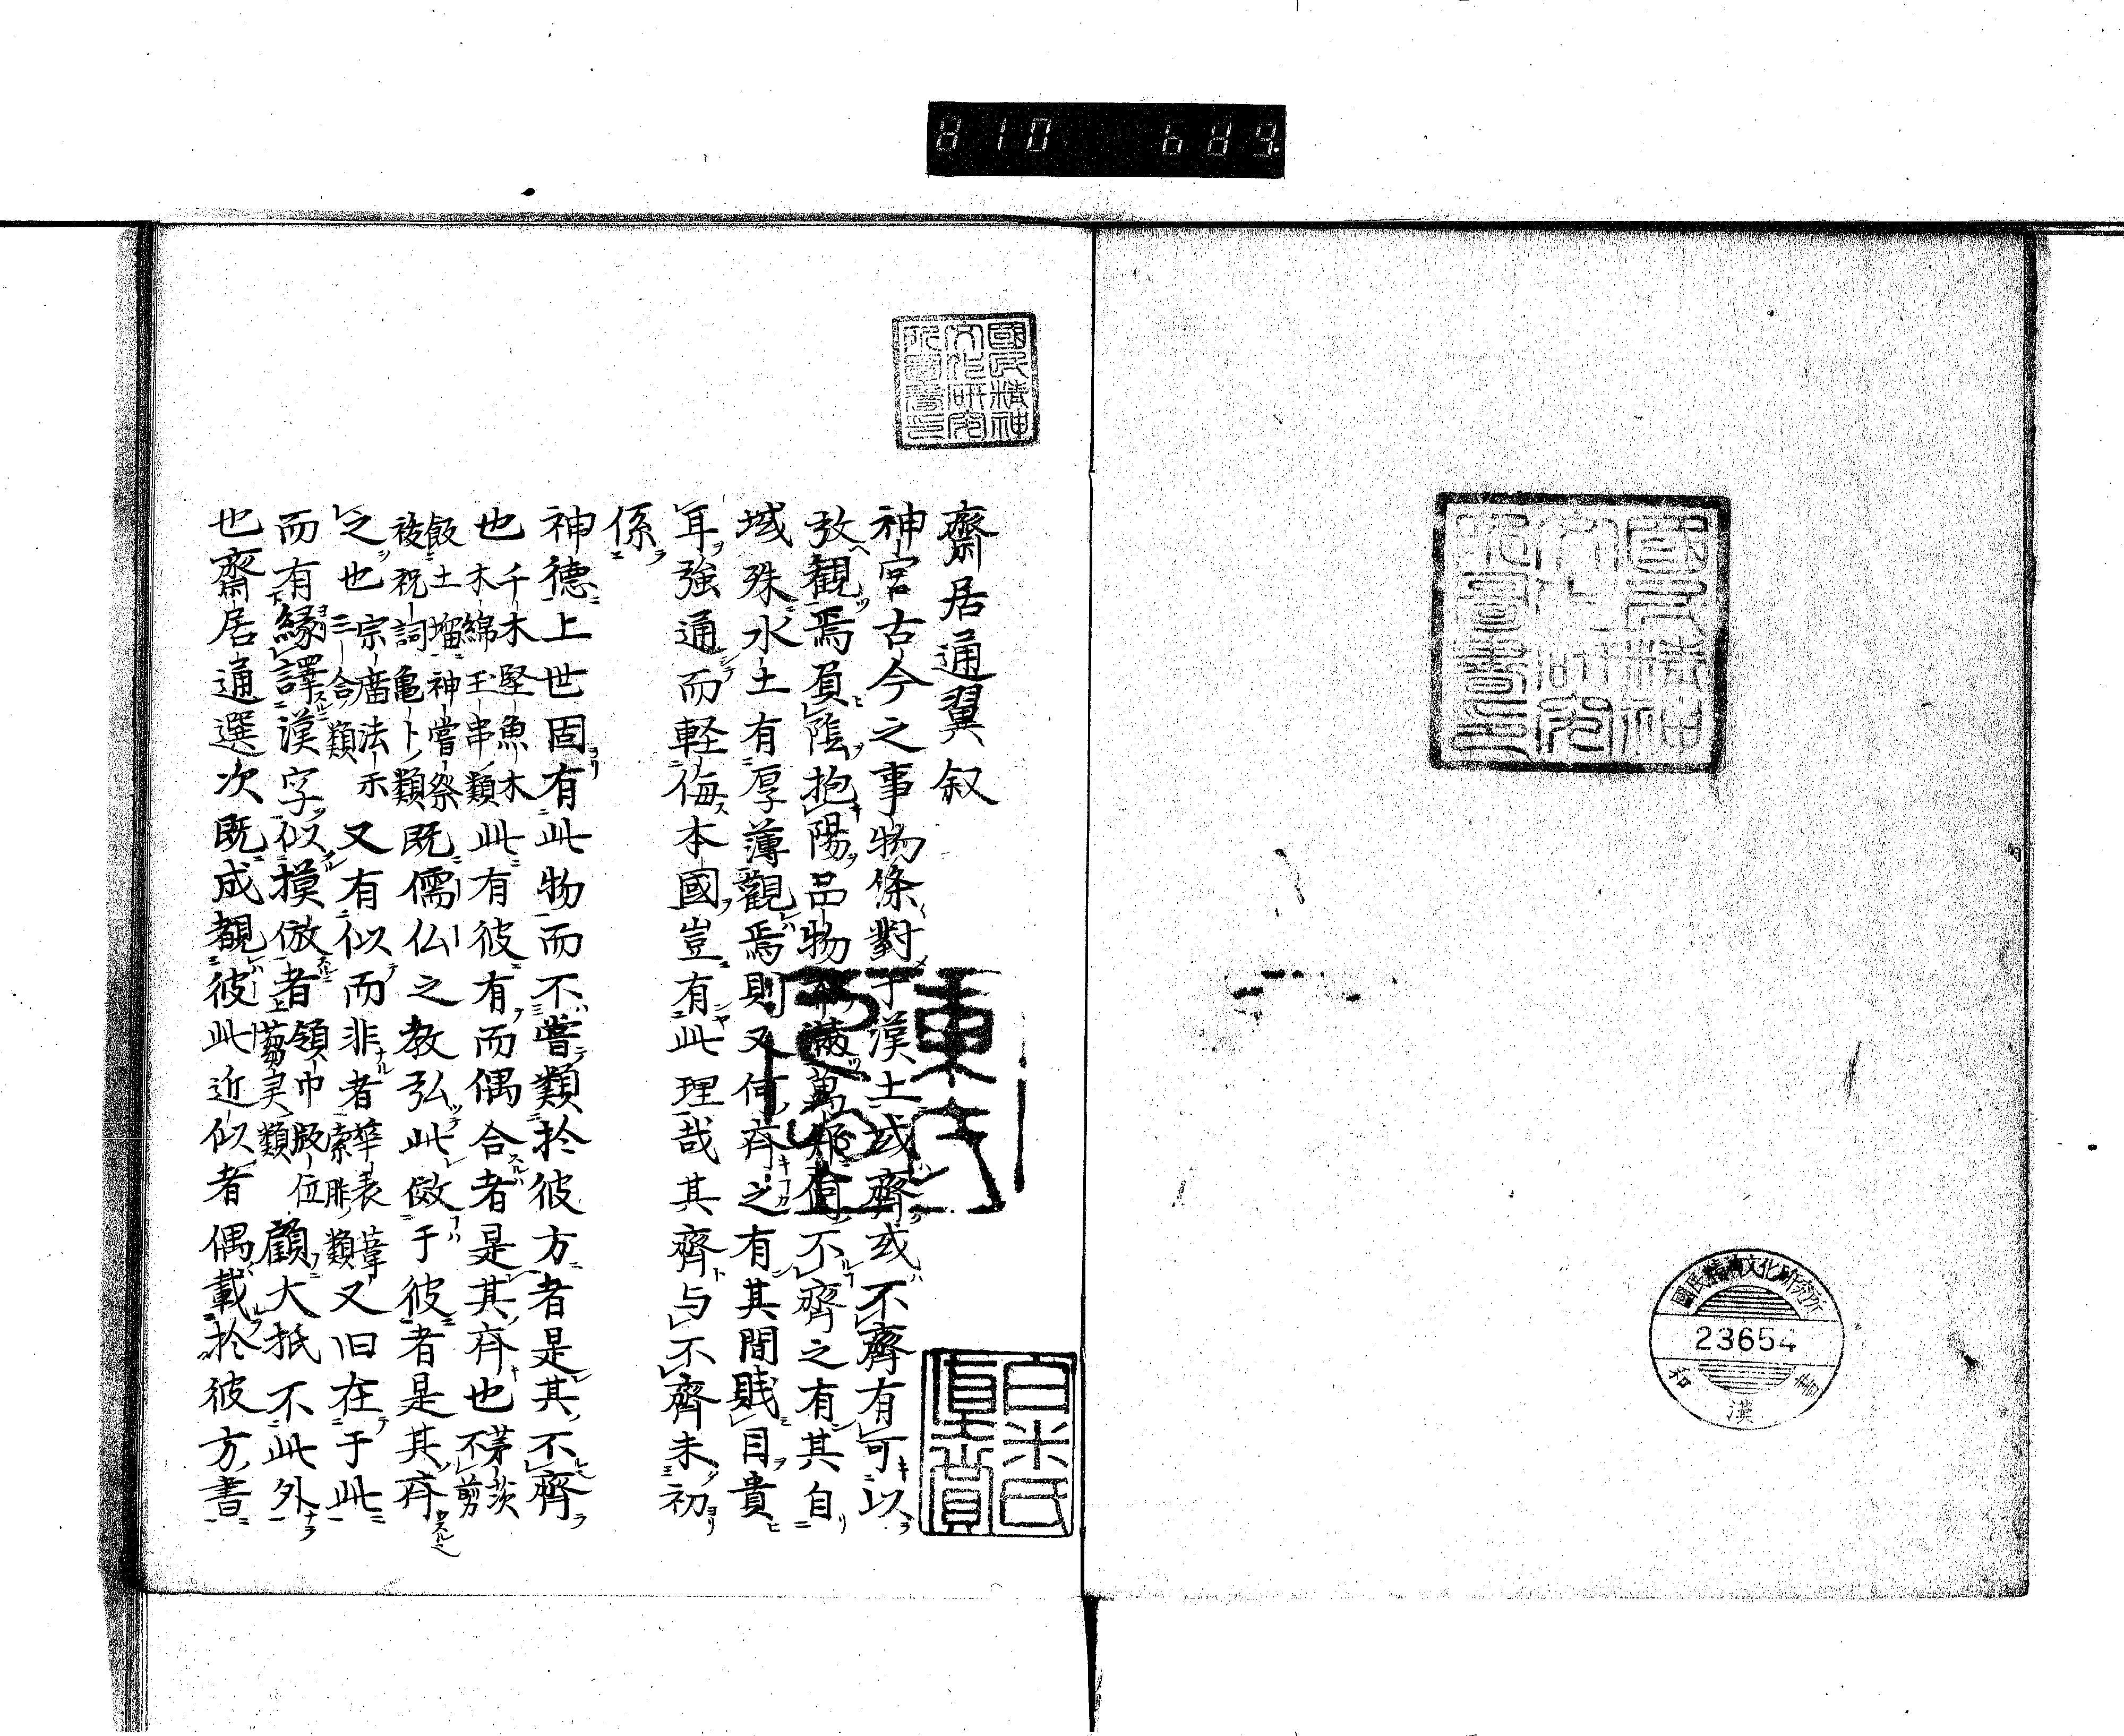 810 689.
國民精神
文化研究
所圖書印
國民精神文化研究所
23654
和漢書
國民精神
文化研究
所圖書印
齋居通翼叙
神宮古今之事物條對于漢土或齊或不齊有可以
攷観焉負陰抱陽品物 萬 何不齊之有其自
域殊水土有厚薄觀焉則又何齊之有其間賤目貴
耳強通而軽侮本國豈有此理哉其齊与不齊未初
係
神德上世固有此物而不嘗類於彼方者是其不齊
也千木堅魚木木綿玉串類此有彼有而偶合者是其齊也茅茨不剪
飯土塯神嘗祭祓祝詞亀卜類既儒仏之教弘此倣于彼者是其齊
之也宗廟法示三合類又有似而非者華表葦索胙類又旧在于此
而有縁譯漢字似摸倣者領巾版位 類顧大抵不此外
也齋居通選次既成覩彼此近似者偶載於彼方書
白米氏